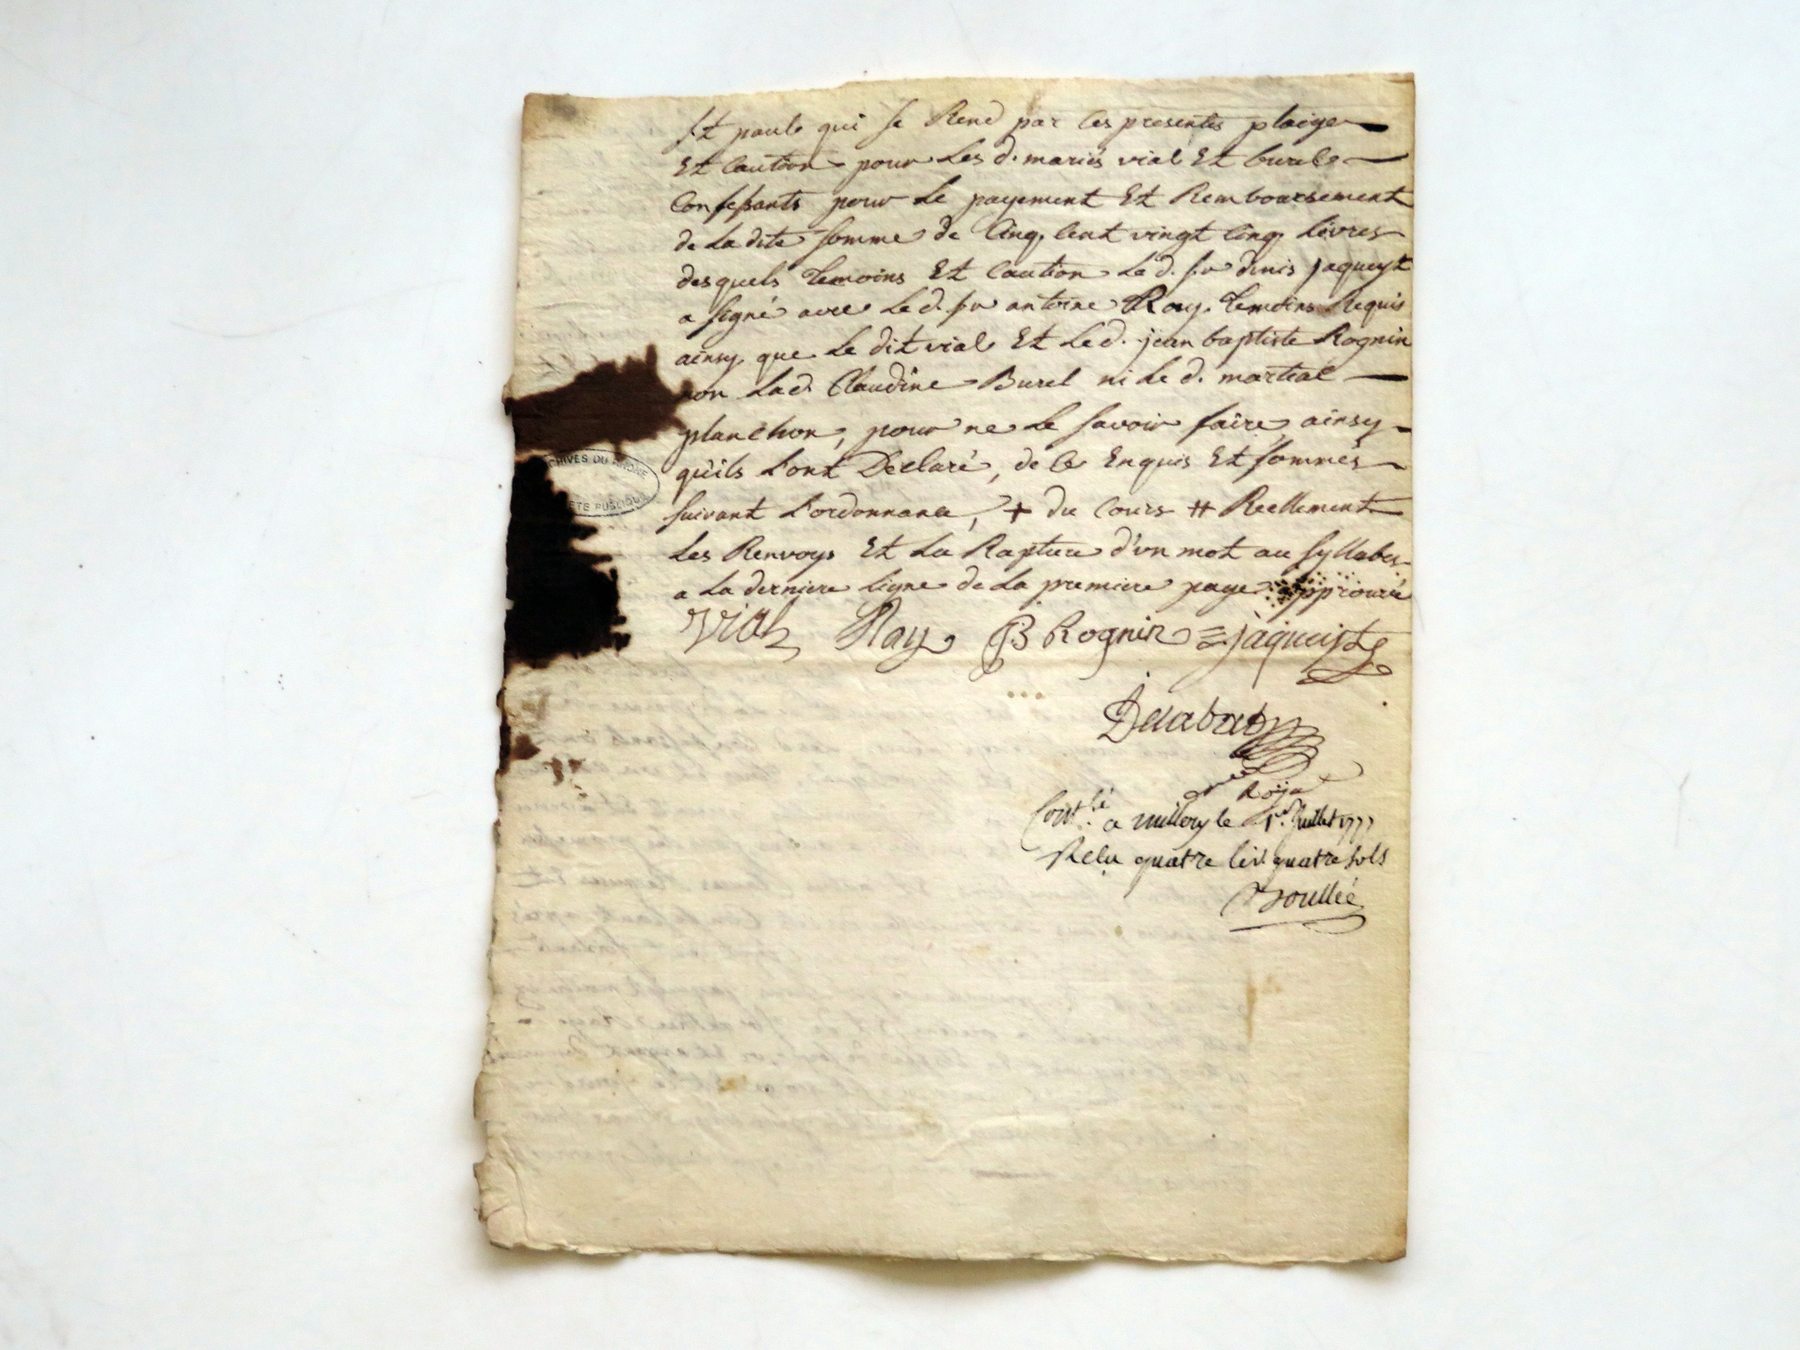 St paul qui se Rend par ces presentes pleige
Et Caution pour Les d. mariés vial Et burel
Confessants pour Le payement Et Remboursement
de La dite somme de Cinq Cent vingt Cinq Livres
desquels temoins Et Caution Le d. sr denis jaqueyt
a signé avec Le d. sr antoine Ray, temoins Requis
ainsy que Le dit vial Et Le d. jean baptiste Rognin
non La d. Claudine Burel ni Le d. martial
planchon, pour ne Le savoir faire, ainsy
qu'ils L'ont Declaré, de Ce Enquis Et sommés
suivant L'ordonnance, + du Cours # Reellement
Les Renvoys Et La Rapture d'un mot au syllabes
a La derniere Ligne de La premiere page approuvé
Vial Ray JB Rognin jaqueyt
Delabat
nre Royal
Contlé a millery le 1er Juillet 1777
Reçu quatre liv. quatre sols
Boullée
ARCHIVES DU RHONE
PUBLIQUE